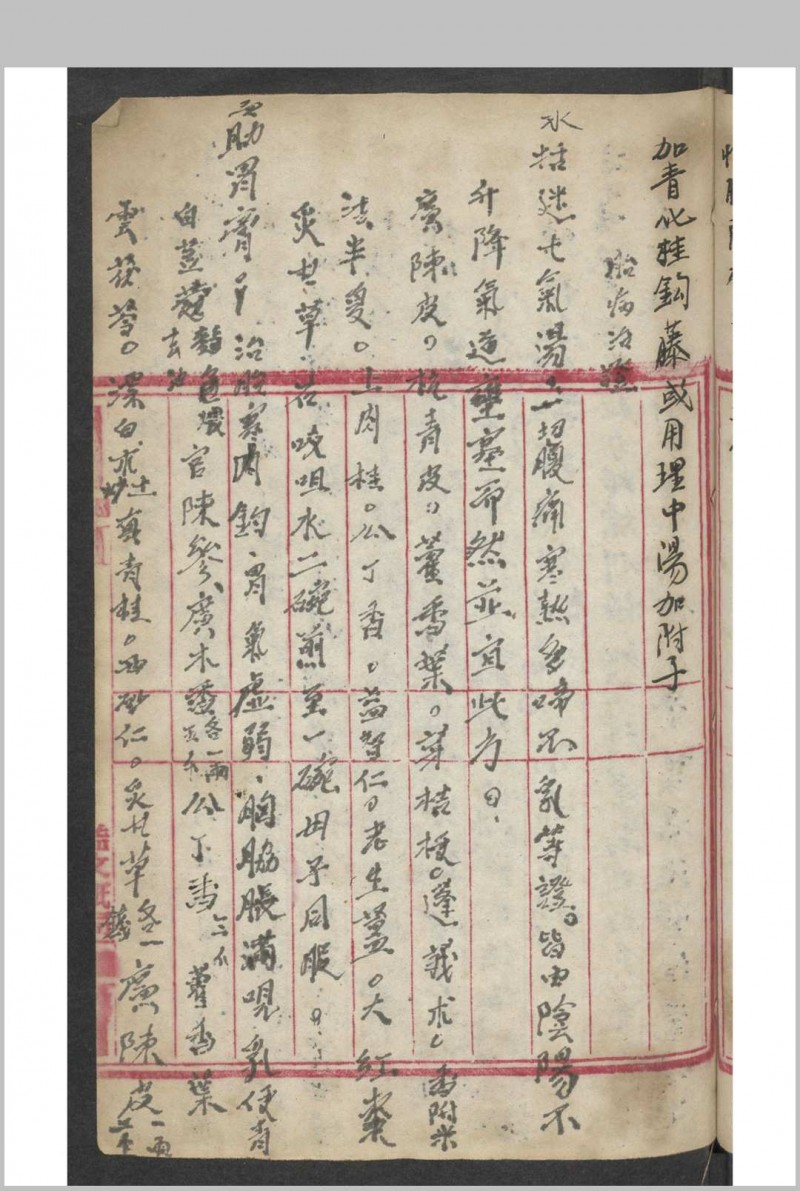 加青化桂鈎藤或用理中湯加附子
胎病治證
木梏迷七氣湯 一切腹痛寒熱多啼不乳等證皆由陰陽不
升降氣逆壅塞而然並宜此方
廣陳皮 杭青皮 藿香葉 芽桔梗 蓬莪朮 香附米
法半夏 上肉桂 公丁香 益智仁 老生薑 大紅棗
炙甘草 右咬咀水二碗煎至一碗母子同服
助胃膏 治胞寒内鈎胃氣虛弱胸脇脹滿哯乳便青
白荳蔻 官陳 廣木 各一兩 公丁香 藿香葉
雲茯苓 漂白朮土炒 真青桂 西砂仁 炙甘草 各一 廣陳皮一兩